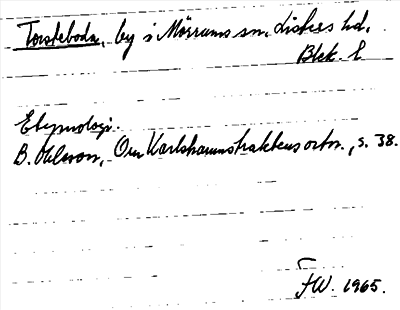 Torsteboda, by i Mörrums sn, Listers hd,
Blek. l
Etymologi.
B. Ohlsson, Om Karlshamnstraktens ortn., s. 38.
FW. 1965.